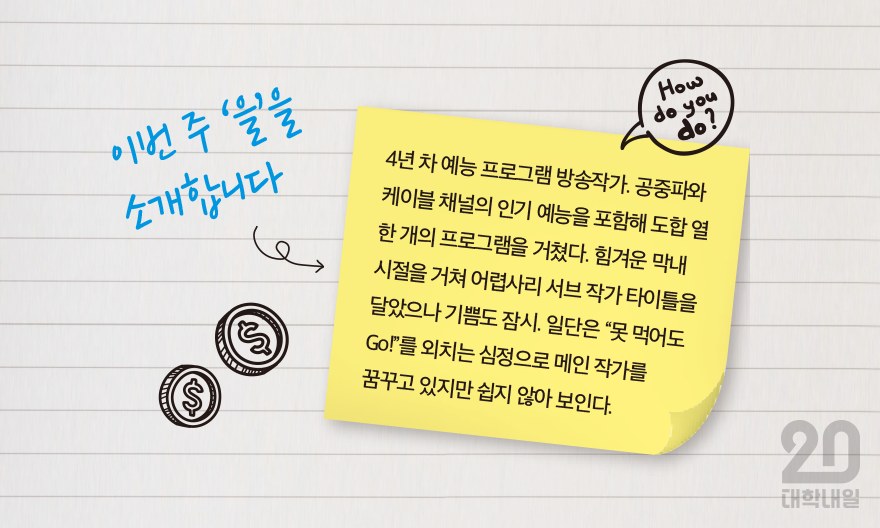 이번 주 ‘을’을
소개합니다
How
do you
do?
4년 차 예능 프로그램 방송작가. 공중파와
케이블 채널의 인기 예능을 포함해 도합 열
한 개의 프로그램을 거쳤다. 힘겨운 막내
시절을 거쳐 어렵사리 서브 작가 타이틀을
달았으나 기쁨도 잠시. 일단은 “못 먹어도
Go!”를 외치는 심정으로 메인 작가를
꿈꾸고 있지만 쉽지 않아 보인다.
$
$
20
대학내일